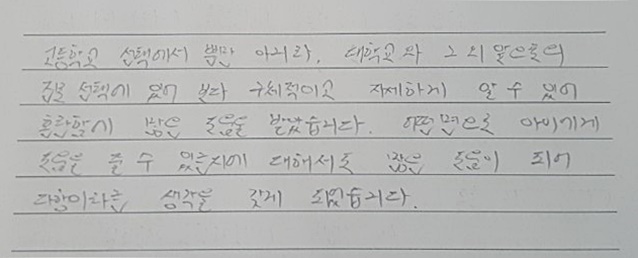 고등학교 선택에서 뿐만 아니라, 대학교와 그 외
선택에 있어 보다 구체적이고 자세하게 알 수 있어
많은 도움을 받았습니다. 어떤면으로 아이에게
도움을 줄 수 있는지에 대해서도 많은 도움이 되어
다행이라는 생각을 갖게 되었습니다.